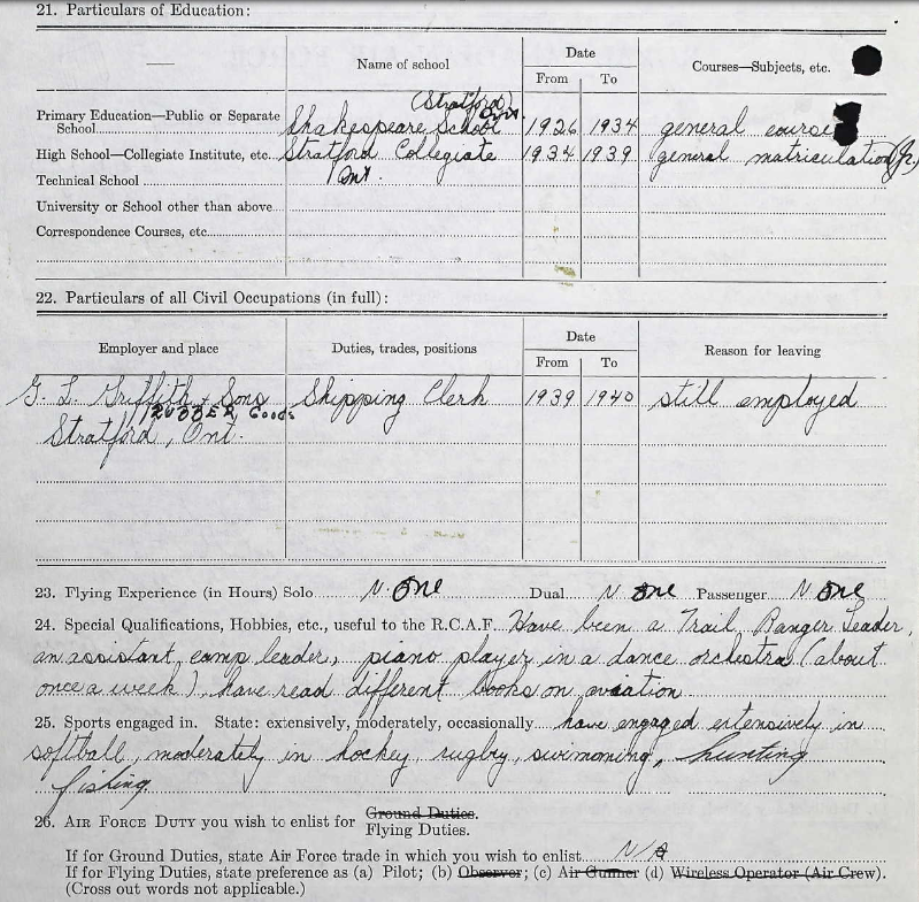 21. Particulars of Education:
Name of school
Date
From To
Courses—Subjects, etc.
(Stratford)
Ont.
Primary Education—Public or Separate
School Shakespeare School 1926 1934 general course
High School—Collegiate Institute, etc. Stratford Collegiate 1934 1939 general matriculation (Jr.)
Technical School Ont.
University or School other than above
Correspondence Courses, etc.
22. Particulars of all Civil Occupations (in full):
Employer and place Duties, trades, positions
Date
From To
Reason for leaving
G. L. Griffith & Sons Shipping Clerk 1939 1940 still employed
RUBBER Goods
Stratford, Ont.
23. Flying Experience (in Hours) Solo None Dual None Passenger None
24. Special Qualifications, Hobbies, etc., useful to the R.C.A.F. Have been a Trail Ranger Leader,
an assistant camp leader, piano player in a dance orchestra (about
once a week), have read different books on aviation
25. Sports engaged in. State: extensively, moderately, occasionally have engaged extensively in
softball, moderately in hockey, rugby, swimming, hunting
fishing.
26. AIR FORCE DUTY you wish to enlist for Ground Duties.
Flying Duties.
If for Ground Duties, state Air Force trade in which you wish to enlist N/A
If for Flying Duties, state preference as (a) Pilot; (b) Observer; (c) Air Gunner (d) Wireless Operator (Air Crew).
(Cross out words not applicable.)